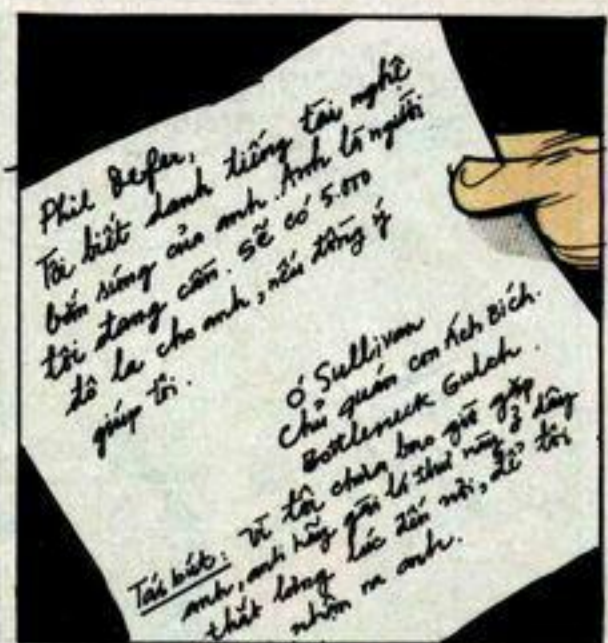 Phil Defer,
Tôi biết danh tiếng tài nghệ
bắn súng của anh. Anh là người
tôi đang cần. Sẽ có 5.000
đô la cho anh, nếu đồng ý
giúp tôi.
O' Sullivan
Chủ quán con Ách Bích.
Bottleneck Gulch.
Tái bút: Vì tôi chưa bao giờ gặp
anh, anh hãy gắn lá thư này ở dây
thắt lưng lúc đến nơi, để tôi
nhận ra anh.